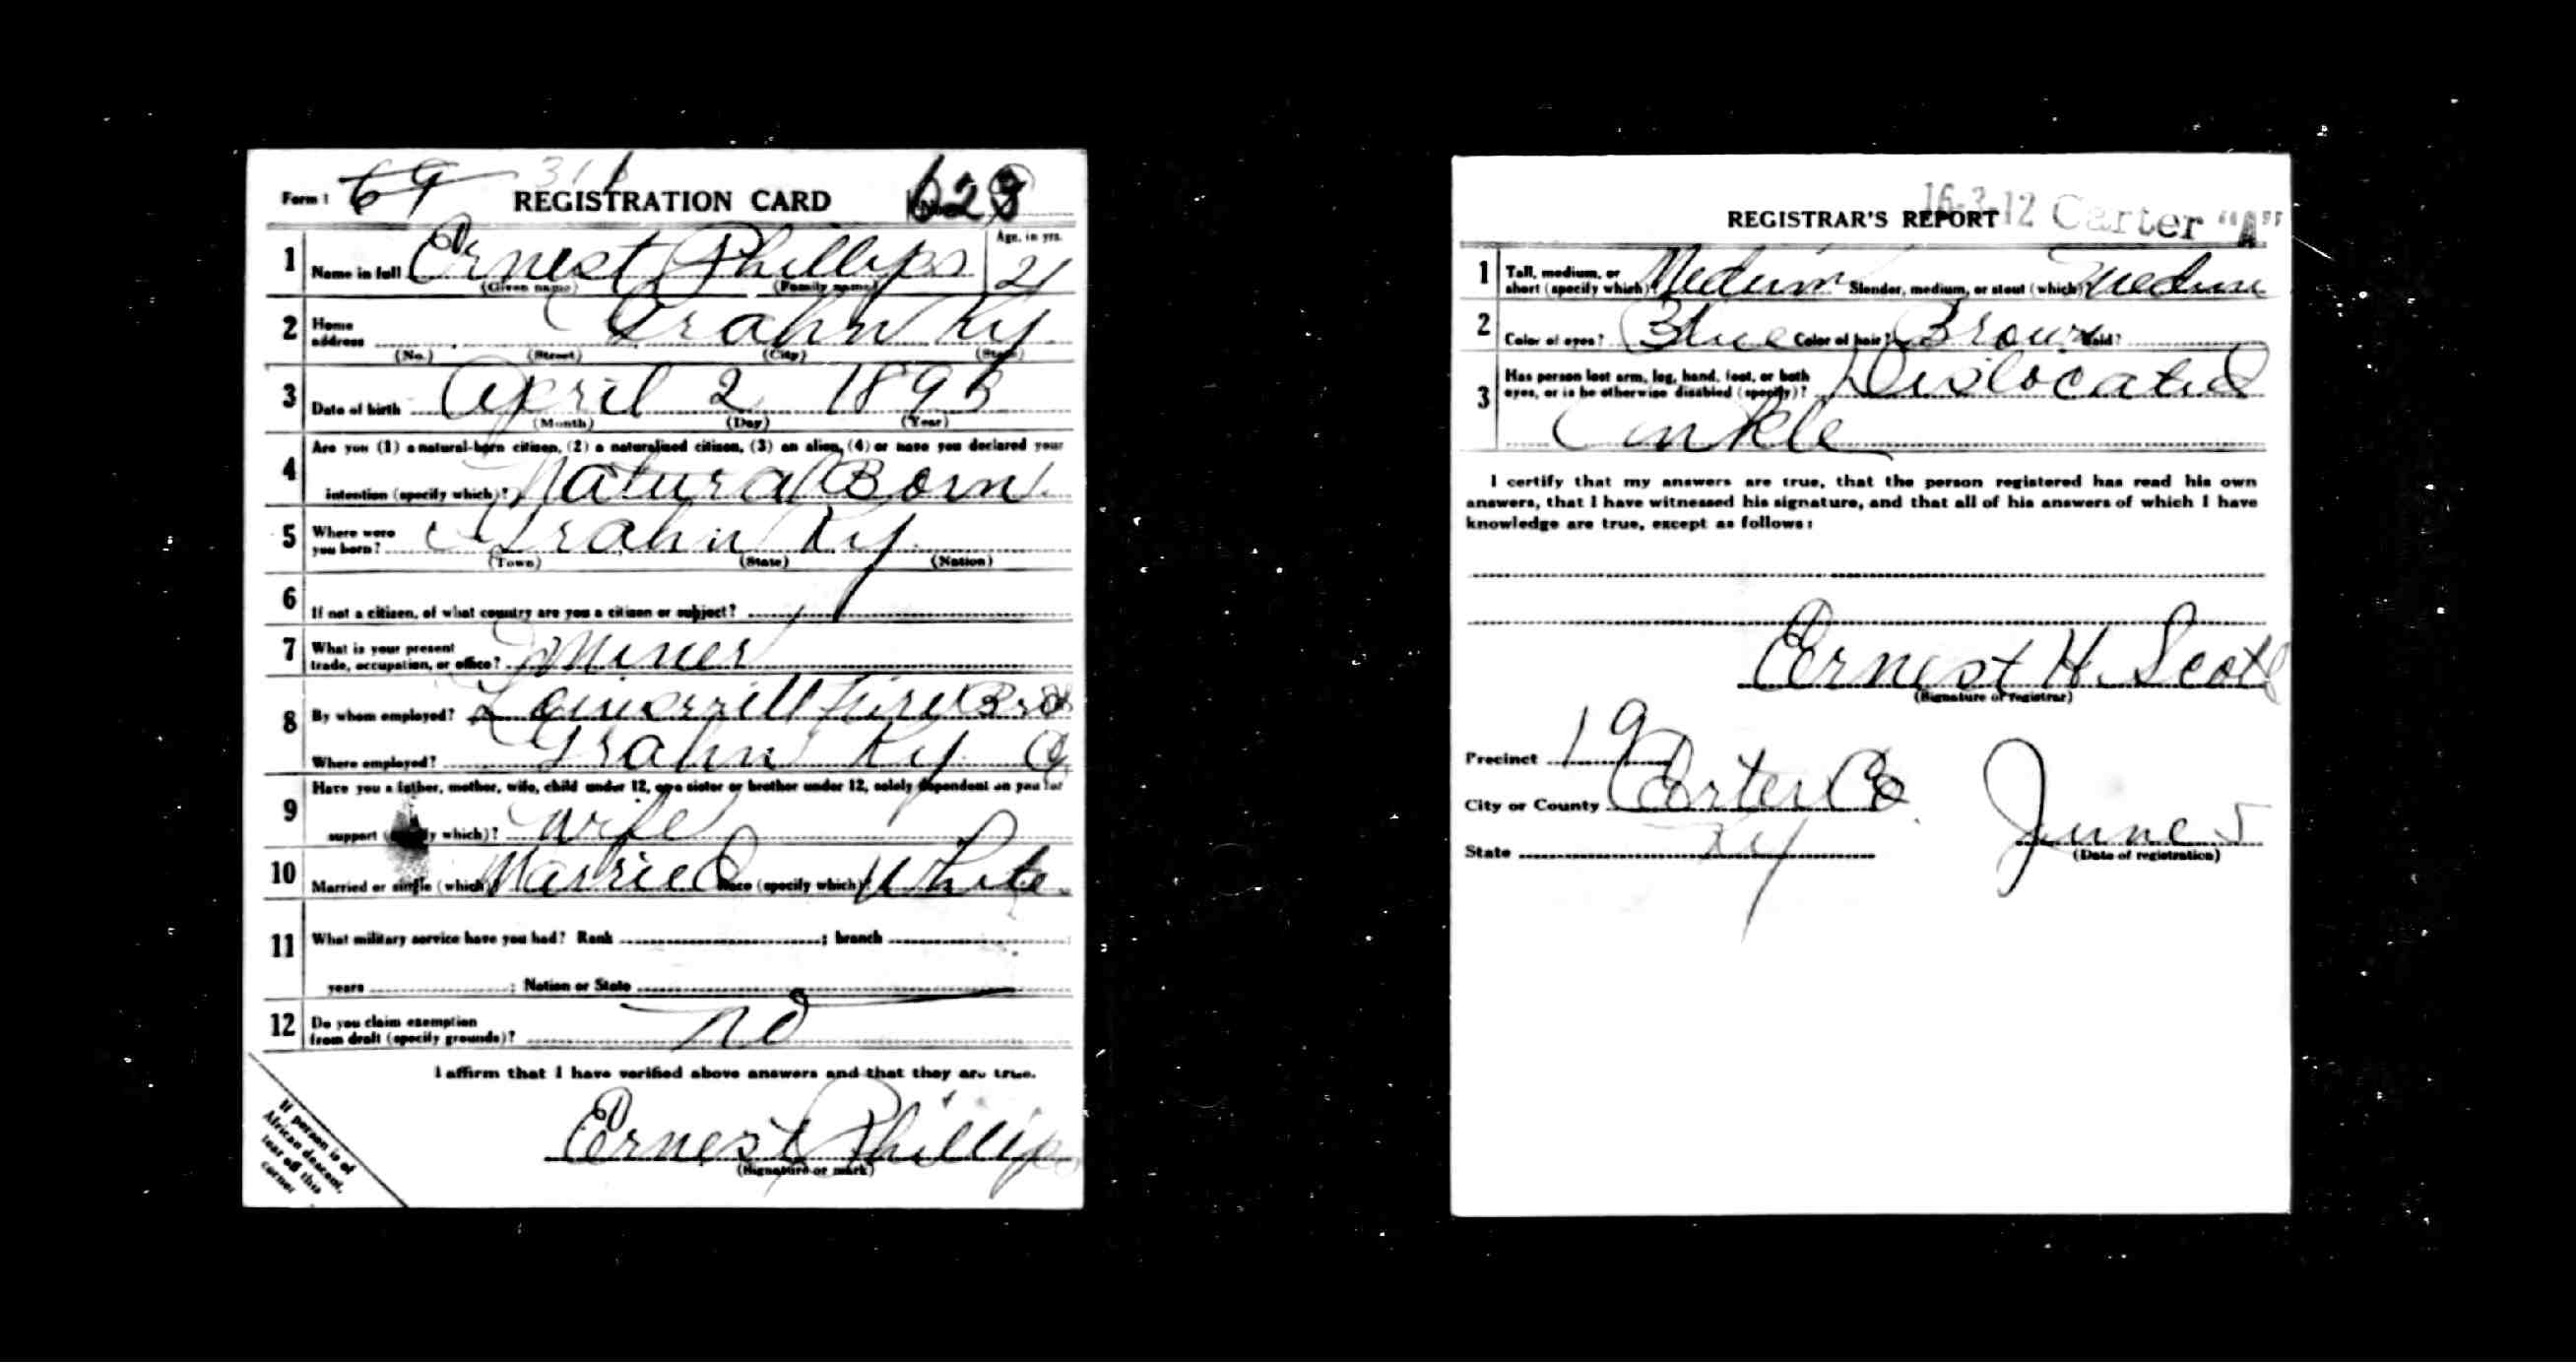 Form 1 69 311 REGISTRATION CARD 623
1 Name in full Ernest Phillips Age, in yrs. 21
(Given name) (Family name)
2 Home address Grahn Ky
(No.) (Street) (City) (State)
3 Date of birth April 2 1896
(Month) (Day) (Year)
4 Are you (1) a natural-born citizen, (2) a naturalized citizen, (3) an alien, (4) or have you declared your
intention (specify which)? Natural Born
5 Where were you born? Grahn Ky
(Town) (State) (Nation)
6 If not a citizen, of what country are you a citizen or subject?
7 What is your present
trade, occupation, or office? Miner
8 By whom employed? Fire Brick
Where employed? Grahn Ky Co
9 Have you a father, mother, wife, child under 12, or a sister or brother under 12, solely dependent on you for
support which)? Wife
10 Married or single (which) Married Race (specify which) White
11 What military service have you had? Rank ; branch
years ; Nation or State
12 Do you claim exemption
from draft (specify grounds)? no
I affirm that I have verified above answers and that they are true.
Ernest Phillips
(Signature or mark)
If person is of
African descent,
tear off this
corner
16-3-12 Carter "A"
REGISTRAR'S REPORT
1 Tall, medium, or
short (specify which)? Medium Slender, medium, or stout (which)? Medium
2 Color of eyes? Blue Color of hair? Brown Bald?
3 Has person lost arm, leg, hand, foot, or both
eyes, or is he otherwise disabled (specify)? Dislocated
Ankle
I certify that my answers are true, that the person registered has read his own
answers, that I have witnessed his signature, and that all of his answers of which I have
knowledge are true, except as follows:
Ernest H. Scott
(Signature of registrar)
Precinct 19
City or County Carter Co.
State Ky
June 5
(Date of registration)